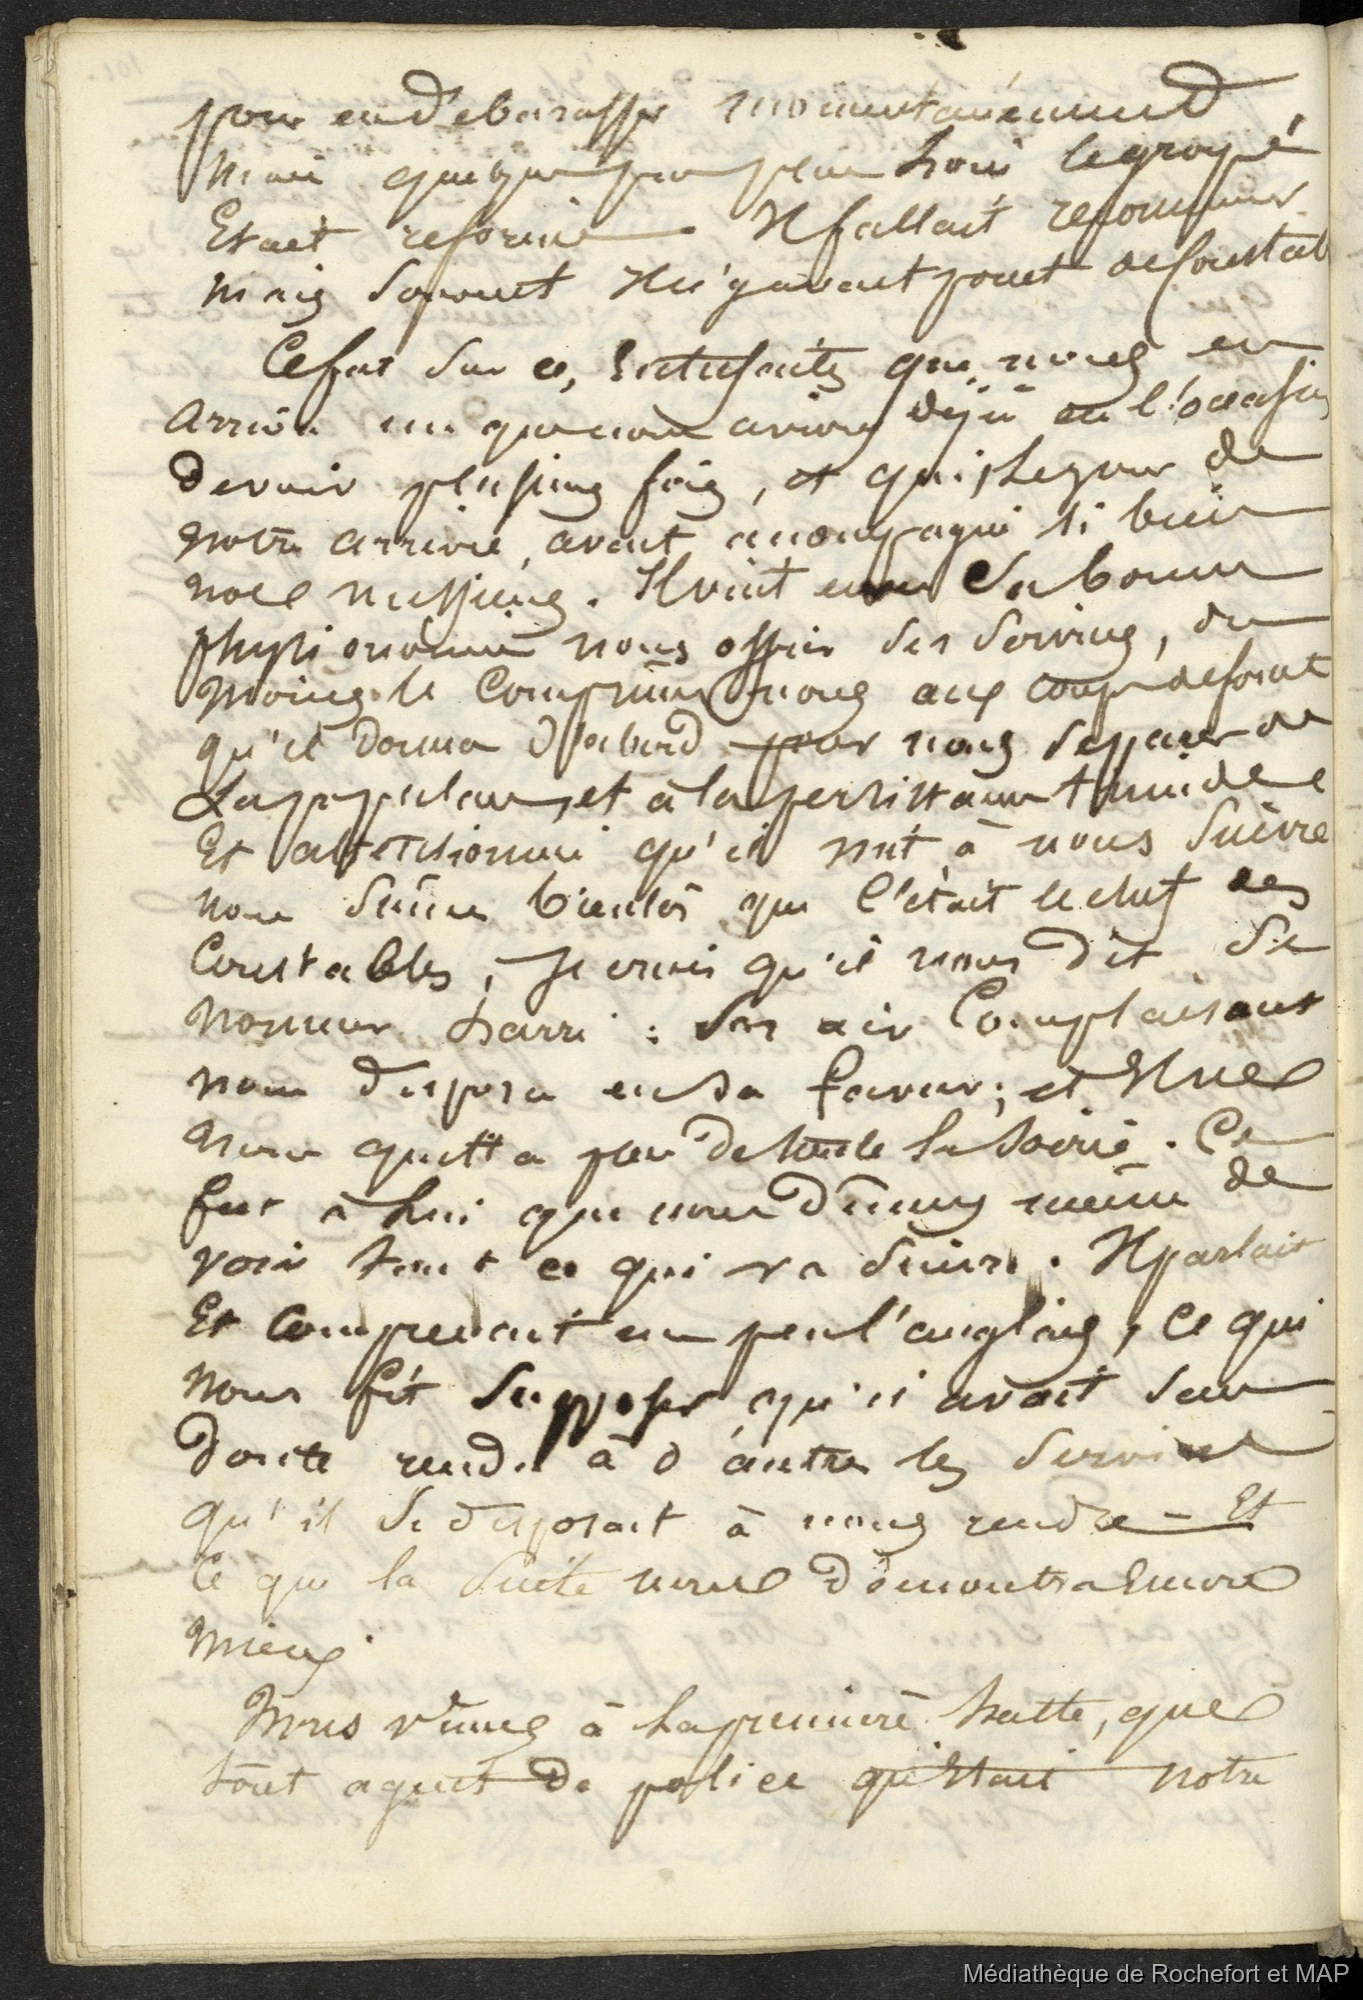 pour en débarasser momentanément
mais quelques pas plus loin le groupe
Etait reformé. Il fallait recommencer
mais souvent Il n'y avait point de constab
Ce fut sur ces entrefaites que nous en
arriva un que nous avions déjà eu l'occasion
de voir plusieurs fois, et qui, le jour de
notre arrivée, avait accompagné si bien
nos messieurs. Il vint avec sa bonne
physionomie nous offrir ses services, du
moins le comprimes nous aux coups de fouet
qu'il donna d'abord pour nous séparer de
La populace, et à la persistance timide
Et affectionnée qu'il mit à nous suivre
nous sumes bientôt que c'était le chef des
Constables, je crois qu'il nous dit se
nommer harri : son air complaisant
nous disposa en sa faveur ; et Il ne
nous quitta pas de toute la soirée. Ce
fut à lui que nous dûmes même de
voir tout ce qui va suivre. Il parlait
Et comprenait un peu l'anglais, ce qui
nous fit supposer qu'il avait sans
doute rendu à d'autres les services
qu'il se disposait à nous rendre – Et
Ce que la suite nous démontra Encore
mieux.
Nous vîmes à la première halte, que
tout agent de police qu'Etait notre
Médiathèque de Rochefort et MAP